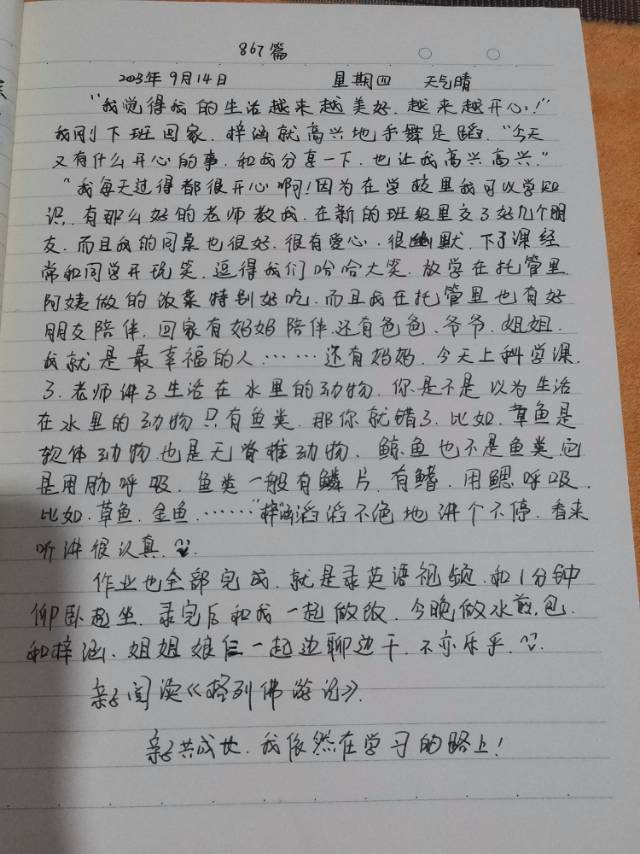 867篇
2023年9月14日 星期四 天气晴
“我觉得我的生活越来越美好.越来越开心!”
我刚下班回家.梓涵就高兴地手舞足蹈.“今天
又有什么开心的事.和我分享一下.也让我高兴高兴.”
“我每天过得都很开心啊!因为在学校里我可以学知
识.有那么好的老师教我.在新的班级里交了好几个朋
友.而且我的同桌也很好.很有爱心.很幽默.下了课经
常和同学开玩笑.逗得我们哈哈大笑.放学在托管里.
阿姨做的饭菜特别好吃.而且我在托管里也有好
朋友陪伴.回家有妈妈陪伴.还有爸爸、爷爷、姐姐.
我就是最幸福的人……还有妈妈.今天上科学课
了.老师讲了生活在水里的动物.你是不是以为生活
在水里的动物只有鱼类.那你就错了.比如.章鱼是
软体动物.也是无脊椎动物.鲸鱼也不是鱼类.它
是用肺呼吸.鱼类一般有鳞片.有鳍.用鳃呼吸.
比如.草鱼.金鱼.……”梓涵滔滔不绝地讲个不停.看来
听讲很认真.
作业也全部完成.就是录英语视频.和1分钟
仰卧起坐.录完后和我一起做饭.今晚做水煎包.
和梓涵、姐姐娘仨一起边聊边干.不亦乐乎.
亲子阅读《格列佛游记》.
亲子共成长.我依然在学习的路上!